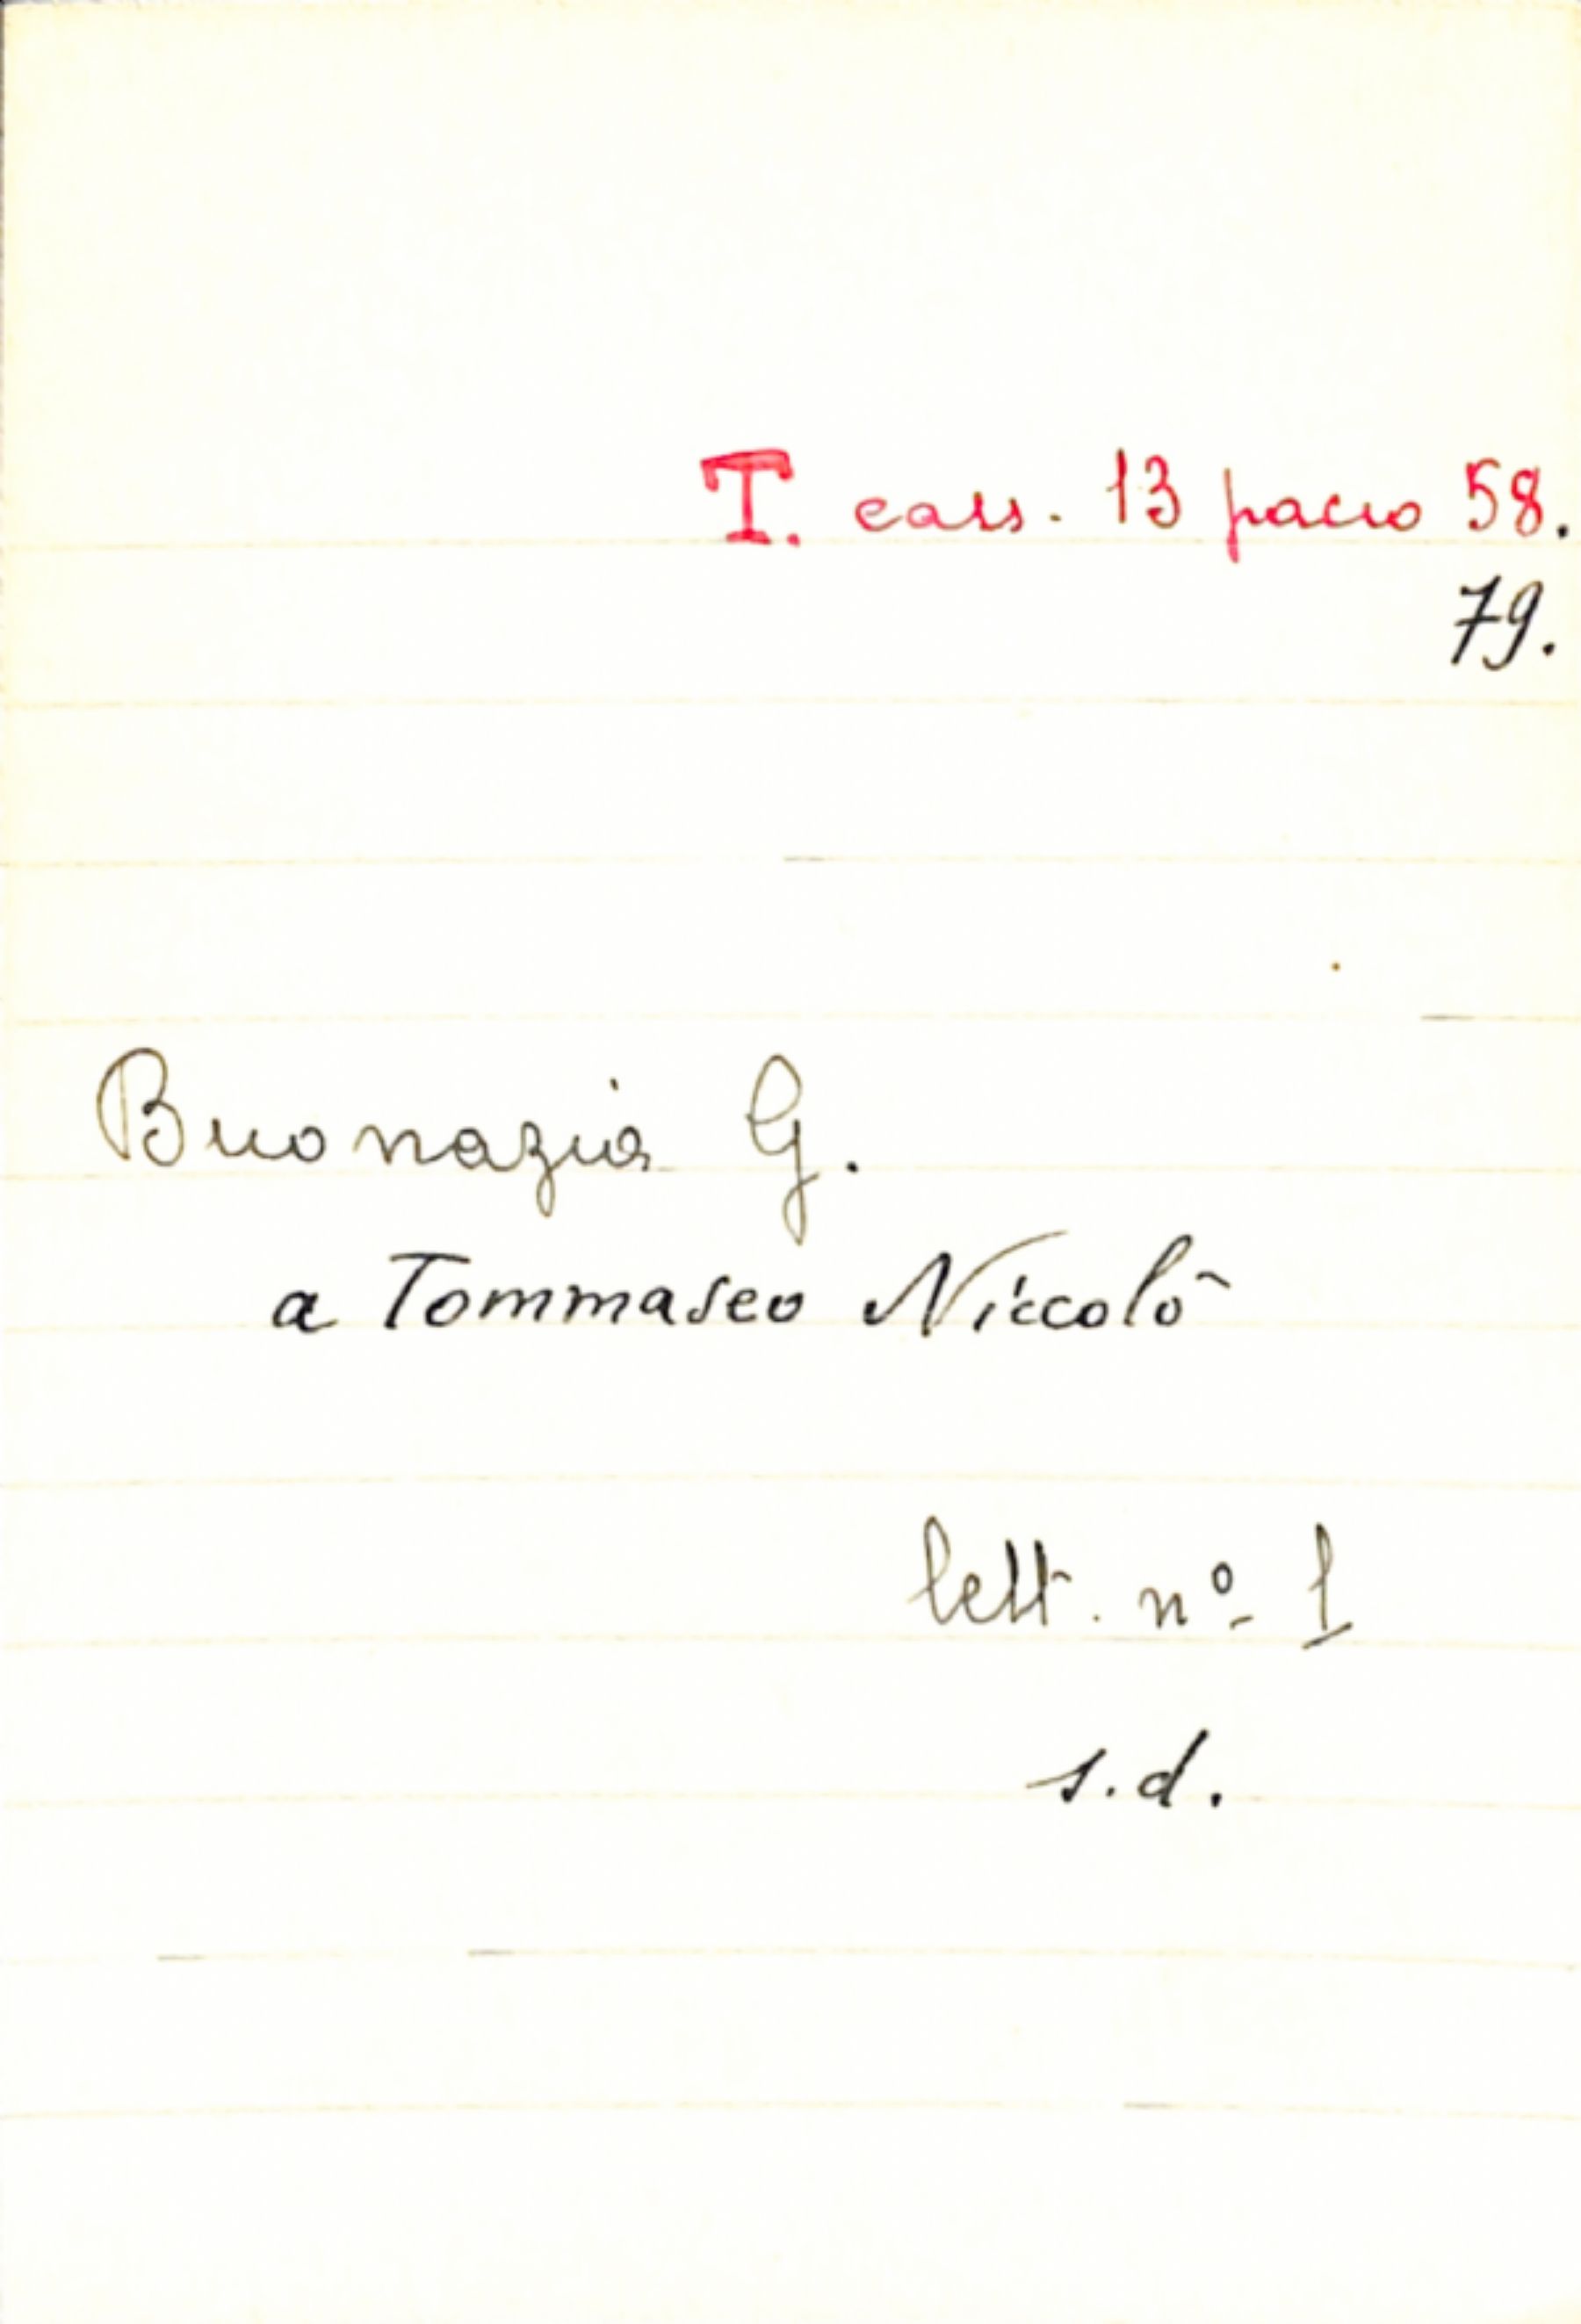 T. cass. 13 pacco 58.
79.
Buonazia G.
a Tommaseo Niccolò
lett. nº 1
s.d.